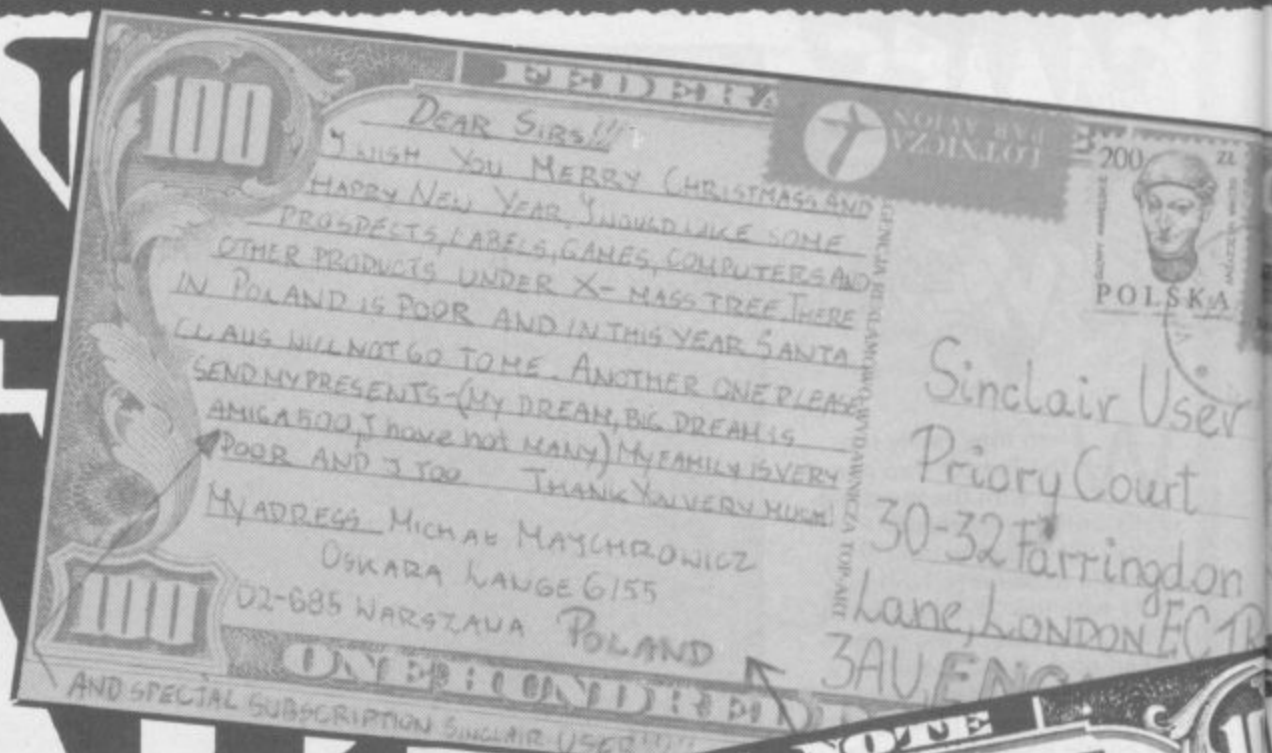 100
FEDERA
DEAR SIRS!!!
I WISH YOU MERRY CHRISTMASS AND
HAPPY NEW YEAR, I WOULD LIKE SOME
PROSPECTS, LABELS, GAMES, COMPUTERS AND
OTHER PRODUCTS UNDER X-MASS TREE. THERE
IN POLAND IS POOR AND IN THIS YEAR SANTA
CLAUS WILL NOT GO TO ME. ANOTHER ONE PLEASE
SEND MY PRESENTS-(MY DREAM, BIG DREAM IS
AMIGA 500, I have not MANY) MY FAMILY IS VERY
POOR AND I TOO THANK YOU VERY MUCH!
MY ADRESS MICHAŁ MAYCHROWICZ
OSKARA LANGE 6/55
02-685 WARSZAWA POLAND
100
ONE HUNDRED
AND SPECIAL SUBSCRIPTION SINCLAIR USER!!!!!
LOTNICZA
PAR AVION
200 ZŁ
POLSKA
Sinclair User
Priory Court
30-32 Farringdon
Lane, LONDON EC1R
3AU, ENG
NOTE